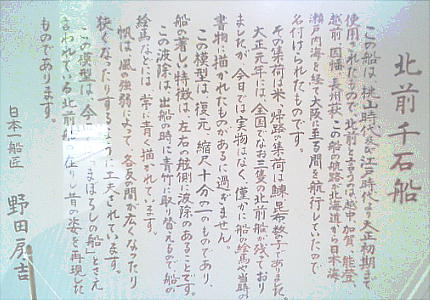 北前千石船
この船は、桃山時代及び江戸時代より大正初期まで
使用されたもので、北前と言うのは、越中、加賀、能登、
越前、因幡、長州萩で、この船の航路が北海道から日本海
瀬戸内海を経て大阪に至る間を航行していたので
名付けられたものです。
その集荷は米、帰路の集荷は鰊、昆布、数の子でありました。
大正元年には、全国でなお三隻の北前船が残っており
ましたが、今日では実物はなく、僅かに船の絵馬や当時の
書物に描かれたものがあるに過ぎません。
この模型は復元、縮尺十分の一のものであり、
船の著しい特徴は、左右の舷側に波除のあることです。
この波除は、出船の時に青竹に取り替えるもので、船の
絵馬などには、常に青く描かれています。
帆は、風の強弱によって、各反の間が広くなったり
狭くなったりするように工夫されています。
この模型は、今 まぼろしの船 とさえ
言われている北前船 在りし昔の姿を再現した
ものであります。
日本一船匠 野田 吉